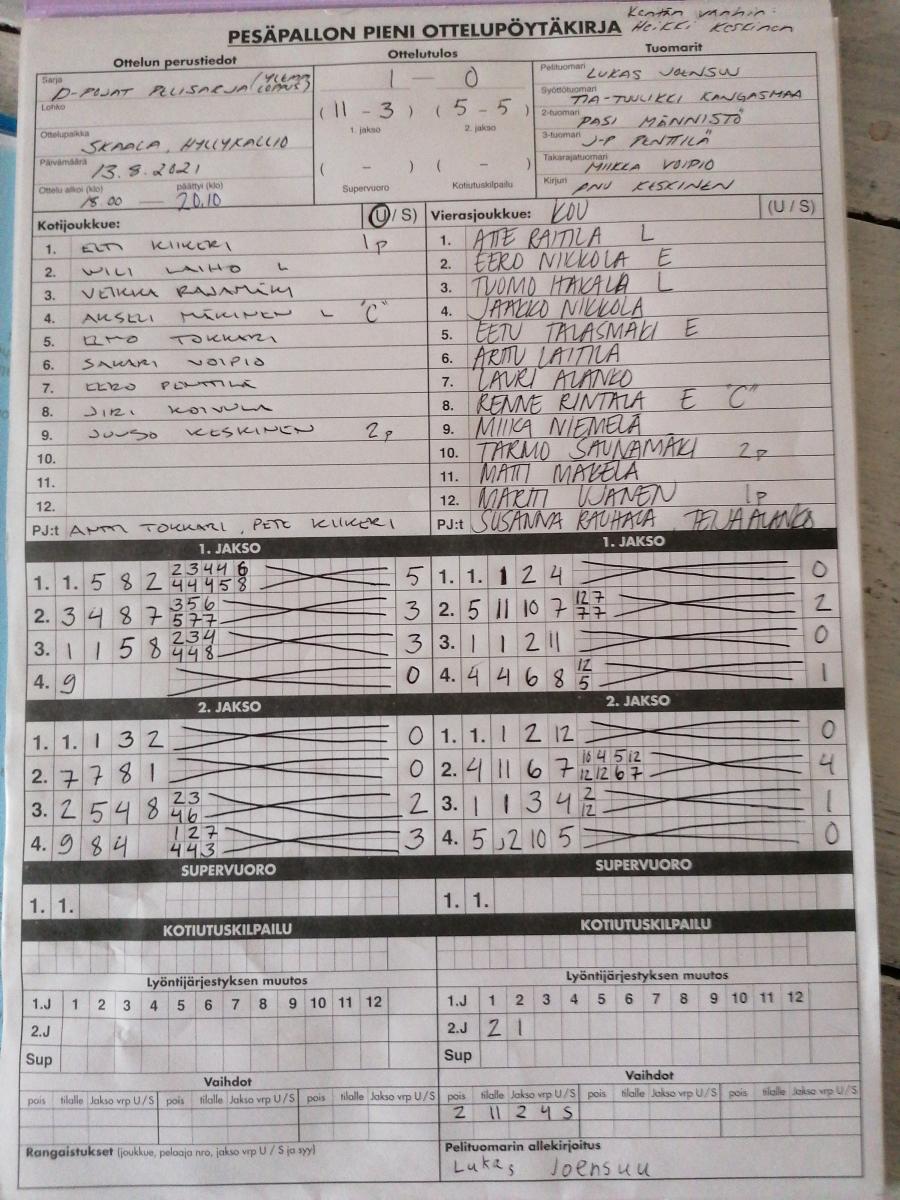 Kentän vanhin:
PESÄPALLON PIENI OTTELUPÖYTÄKIRJA Heikki Keskinen
Ottelun perustiedot Ottelutulos Tuomarit
Sarja D-POJAT PELISARJA (YLEMPI LOPPUS)
1 — 0
Pelituomari LUKAS JOENSUU
Lohko
(11 - 3) (5 - 5)
1. jakso 2. jakso
Syöttötuomari TIA-TUULIKKI KANGASMAA
2-tuomari PASI MÄNNISTÖ
Ottelupaikka SKAALA, HYLLYKALLIO
3-tuomari J-P PENTTILÄ
Päivämäärä 13.8.2021
( - ) ( - )
Supervuoro Kotiutuskilpailu
Takarajatuomari MIIKKA VOIPIO
Ottelu alkoi (klo) päättyi (klo)
18.00 — 20.10
Kirjuri ANU KESKINEN
Kotijoukkue: (U / S) Vierasjoukkue: KOU (U / S)
1. ELTI KIIKERI 1p 1. ATTE RAITILA L
2. WILI LAIHO L 2. EERO NIKKOLA E
3. VEIKKA RAJAMÄKI 3. TUOMO HAKALA L
4. AKSELI MÄKINEN L "C" 4. JAAKKO NIKKOLA
5. ELMO TOKKARI 5. EETU TALASMÄKI E
6. SAKARI VOIPIO 6. ARTTU LAITILA
7. EERO PENTTILÄ 7. LAURI ALANKO
8. JIRI KOIVULA 8. RENNE RINTALA E "C"
9. JUUSO KESKINEN 2p 9. MIIKA NIEMELÄ
10. 10. TARMO SAUNAMÄKI 2p
11. 11. MATTI MÄKELÄ
12. 12. MARTTI UJANEN 1p
PJ:t ANTTI TOKKARI, PETE KIIKERI PJ:t SUSANNA RAUHALA, TEIJA ALANKO
1. JAKSO 1. JAKSO
1. 1. 5 8 2 2 3 4 4 6 5 1. 1. 1 2 4 0
4 4 4 5 8
2. 3 4 8 7 3 5 6 3 2. 5 11 10 7 12 7 2
5 7 7 7 7
3. 1 1 5 8 2 3 4 3 3. 1 1 2 11 0
4 4 8
4. 9 0 4. 4 4 6 8 12 1
5
2. JAKSO 2. JAKSO
1. 1. 1 3 2 0 1. 1. 1 2 12 0
2. 7 7 8 1 0 2. 4 11 6 7 10 4 5 12 4
12 12 6 7
3. 2 5 4 8 2 3 2 3. 1 1 3 4 2 1
4 6 12
4. 9 8 4 1 2 7 3 4. 5 12 10 5 0
4 4 3
SUPERVUORO SUPERVUORO
1. 1. 1. 1.
KOTIUTUSKILPAILU KOTIUTUSKILPAILU
Lyöntijärjestyksen muutos Lyöntijärjestyksen muutos
1.J 1 2 3 4 5 6 7 8 9 10 11 12 1.J 1 2 3 4 5 6 7 8 9 10 11 12
2.J 2.J 2 1
Sup Sup
Vaihdot Vaihdot
pois tilalle Jakso vrp U / S pois tilalle Jakso vrp U / S pois tilalle Jakso vrp U / S pois tilalle Jakso vrp U / S pois tilalle Jakso vrp U / S pois tilalle Jakso vrp U / S
2 11 2 4 S
Rangaistukset (joukkue, pelaaja nro, jakso vrp U / S ja syy) Pelituomarin allekirjoitus
Lukas Joensuu